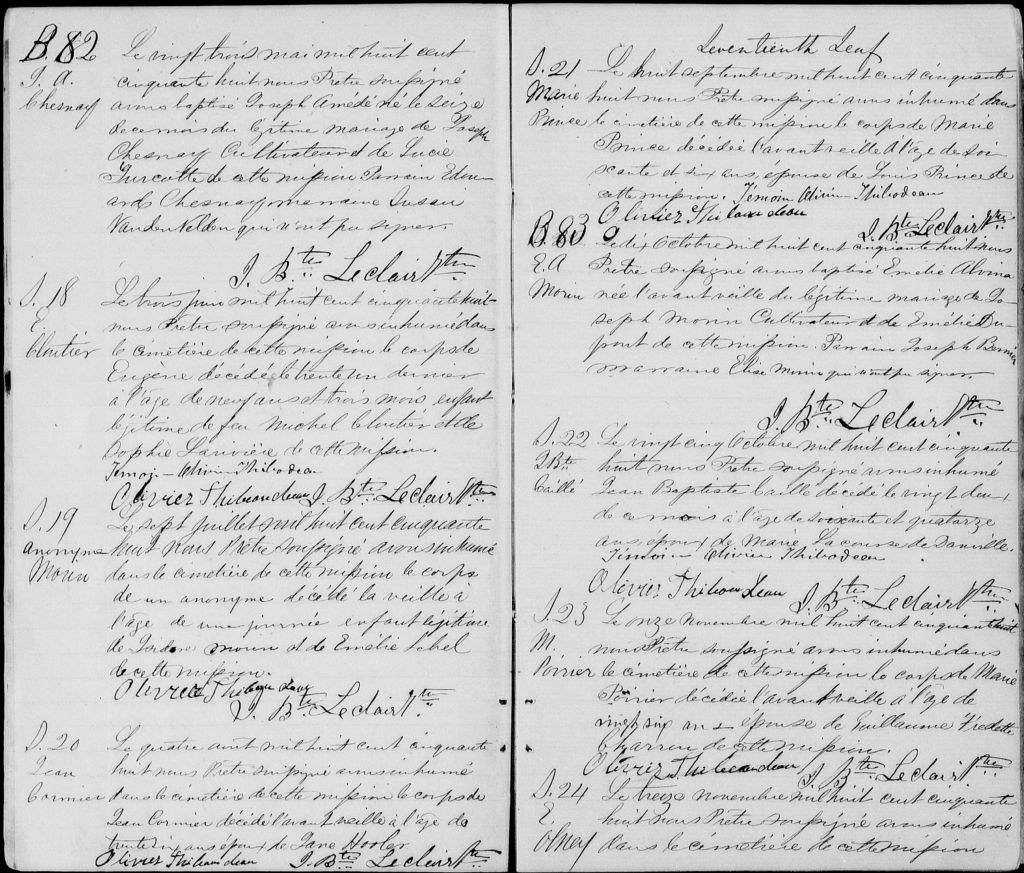 B. 82
J. A.
Chesnay
Le vingt trois mai mil huit cent
cinquante huit nous Prêtre soussigné
avons baptisé Joseph Amédé né le seize
de ce mois du légitime mariage de Joseph
Chesnay Cultivateur et de Lucie
Turcotte de cette mission Parrain Edou-
ard Chesnay, marraine Susan
Vanden Velden qui n'ont pu signer.
J. Bte Leclair Ptre
S. 18
E.
Cloutier
Le trois juin mil huit cent cinquante huit
nous Prêtre soussigné avons inhumé dans
le cimetière de cette mission le corps de
Eugène décédé le trente un dernier
à l'âge de neuf ans et trois mois enfant
légitime de feu Michel Cloutier et de
Sophie Larivière de cette mission.
Temoin Olivier Thibodeau
Olivier Thibeaudeau J. Bte Leclair Ptre
S. 19
anonyme
Morin
Le sept juillet mil huit cent cinquante
huit nous Prêtre soussigné avons inhumé
dans le cimetière de cette mission le corps
de un anonyme décédé la veille à
l'âge de une journée enfant légitime
de Isidore Morin et de Emélie
de cette mission.
Olivier Thibeaudeau
J. Bte Leclair Ptre
S. 20
Jean
Cormier
Le quatre août mil huit cent cinquante
huit nous Prêtre soussigné avons inhumé
dans le cimétière de cette mission le corps de
Jean Cormier décédé l'avant veille à l'âge de
trente ans époux de Jane
Olivier Thibaudeau J. Bte Leclair Ptre
Seventienth Leaf
S. 21
Marie
Prince
Le huit septembre mil huit cent cinquante
huit nous Prêtre soussigné avons inhumé dans
le cimetière de cette mission le corps de Marie
Prince décédée l'avant veille à l'âge de soi-
xante et six ans, épouse de Louis Prince de
cette mission. Témoin Olivier Thibodeau
Olivier Thibaudeau
J. Bte Leclair Ptre
B. 83
E. A
Morin
Le dix Octobre mil huit cent cinquante huit nous
Prêtre soussigné avons baptisé Emélie Alvina
née l'avant veille du légitime mariage de Jo-
seph Morin Cultivateur et de Emélie Du-
pont de cette mission. Parrain Joseph Bernier
marraine Elise Morin qui n'ont pu signer.
J. Bte Leclair Ptre
S. 22
J Bte
Caillé
Le vingt cinq Octobre mil huit cent cinquante
huit nous Prêtre soussigné avons inhumé
Jean Baptiste Caille décédé le vingt deux
de ce mois à l'âge de soixante et quatorze
ans époux de Marie Lacourse de Danville.
Temoin Olivier Thibodeau
Olivier Thibaudeau
J. Bte Leclair Ptre
S. 23
M.
Poirier
Le onze novembre mil huit cent cinquante huit
nous Prêtre soussigné avons inhumé dans
le cimetière de cette mission le corps de Marie
Poirier décédée l'avant veille à l'âge de
vingt six ans épouse de Guillaume Vidette
Charron de cette mission.
Olivier Thibeaudeau J. Bte Leclair Ptre
S. 24
E.
Olney
Le treize novembre mil huit cent cinquante
huit nous Prêtre soussigné avons inhumé
dans le cémétière de cette mission